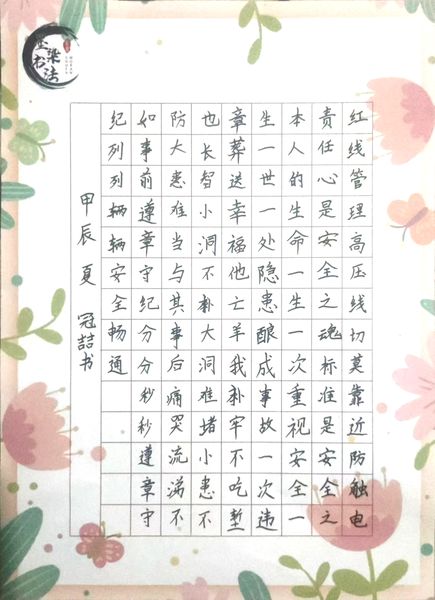 红线管理高压线切莫靠近防触电
责任心是安全之魂标准是安全之
本人的生命一生一次重视安全一
生一世一处隐患酿成事故一次违
章葬送幸福他亡羊我补牢不吃堑
也长智小洞不补大洞难堵小患不
防大患难当与其事后痛哭流涕不
如事前遵章守纪分分秒秒遵章守
纪列列辆辆安全畅通
甲辰夏 冠喆书